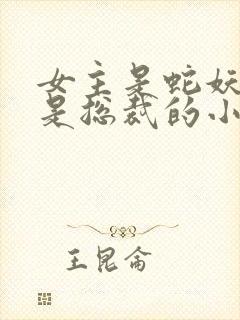 女主是蛇妖
是总裁的小
王昆仑